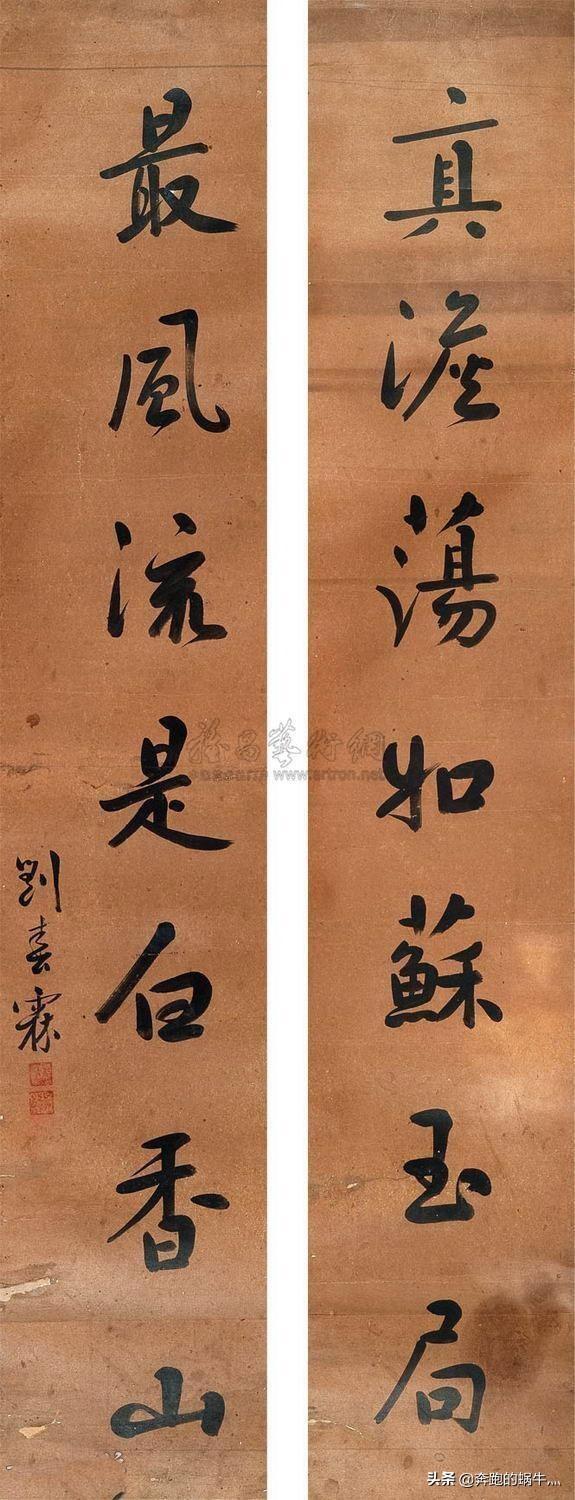 真澹蕩如蘇玉局
最風流是白香山
劉春霖
雅昌藝術網
www.artron.net
头条 @奔跑的蜗牛灬